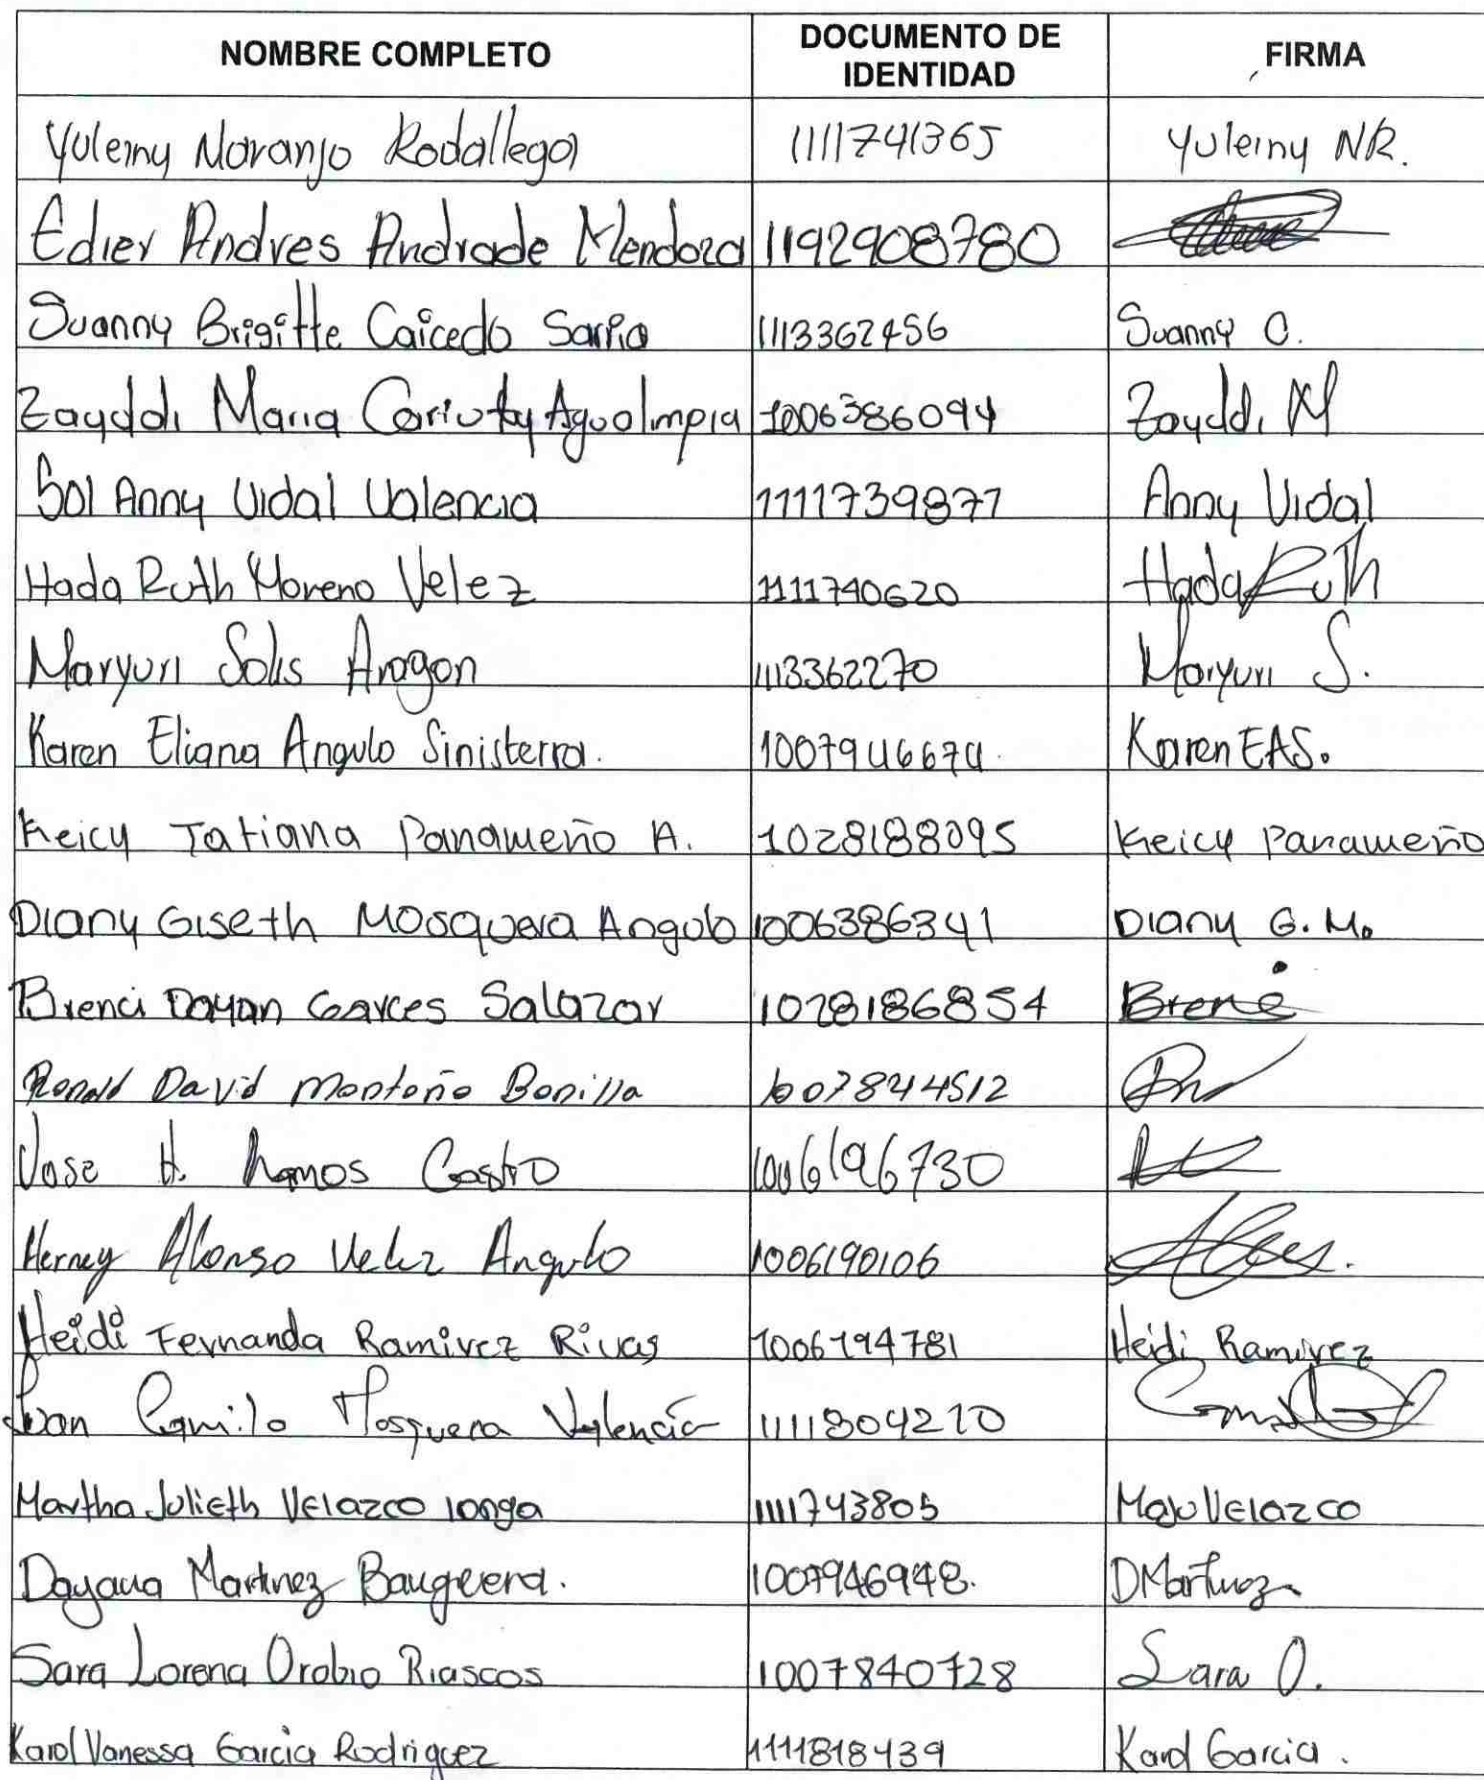 NOMBRE COMPLETO DOCUMENTO DE IDENTIDAD FIRMA
Yuleiny Naranjo Rodallega 1111741365 Yuleiny NR.
Edier Andres Andrade Mendoza 1192908780
Suanny Brigitte Caicedo Sarria 1113362456 Suanny C.
Zayddi Maria Agualimpia 1006386094 Zayddi M
Sol Anny Vidal Valencia 1111739877 Anny Vidal
Hada Ruth Moreno Velez 1111740620 Hada Ruth
Maryuri Solis Aragon 1113362270 Maryuri S.
Karen Eliana Angulo Sinisterra. 1007946674. Karen EAS.
Keicy Tatiana Panameño A. 1028188095 Keicy Panameño
Diany Giseth Mosquera Angulo 1006386341 Diany G. M.
Brenci Dayan Garces Salazar 1028186854 Brenc
Ronald David Montaño Bonilla 1007844512
Jose H. Ramos Castro 1006196730
Herney Alonso Velez Angulo 1006190106
Heidi Fernanda Ramirez Rivas 1006194781 Heidi Ramirez
Juan Camilo Mosquera Valencia 1111804210
Martha Julieth Velazco longa 1111743805 Maju Velazco
Dayana Martinez Bauguera. 1007946948. DMartinez
Sara Lorena Orobio Riascos 1007840728 Sara O.
Karol Vanessa Garcia Rodriguez 1111818439 Karol Garcia.